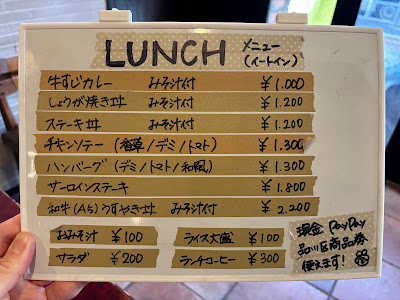 LUNCH メニュー
(イートイン)
牛すじカレー みそ汁付 ¥1.000
しょうが焼き丼 みそ汁付 ¥1.200
ステーキ丼 みそ汁付 ¥1.200
チキンソテー (香草/デミ/トマト) ¥1.300
ハンバーグ (デミ/トマト/和風) ¥1.300
サーロインステーキ ¥1.800
和牛(A5)うすやき丼 みそ汁付 ¥2.200
おみそ汁 ¥100
ライス大盛 ¥100
サラダ ¥200
ランチコーヒー ¥300
現金 PayPay
品川区商品券
使えます!